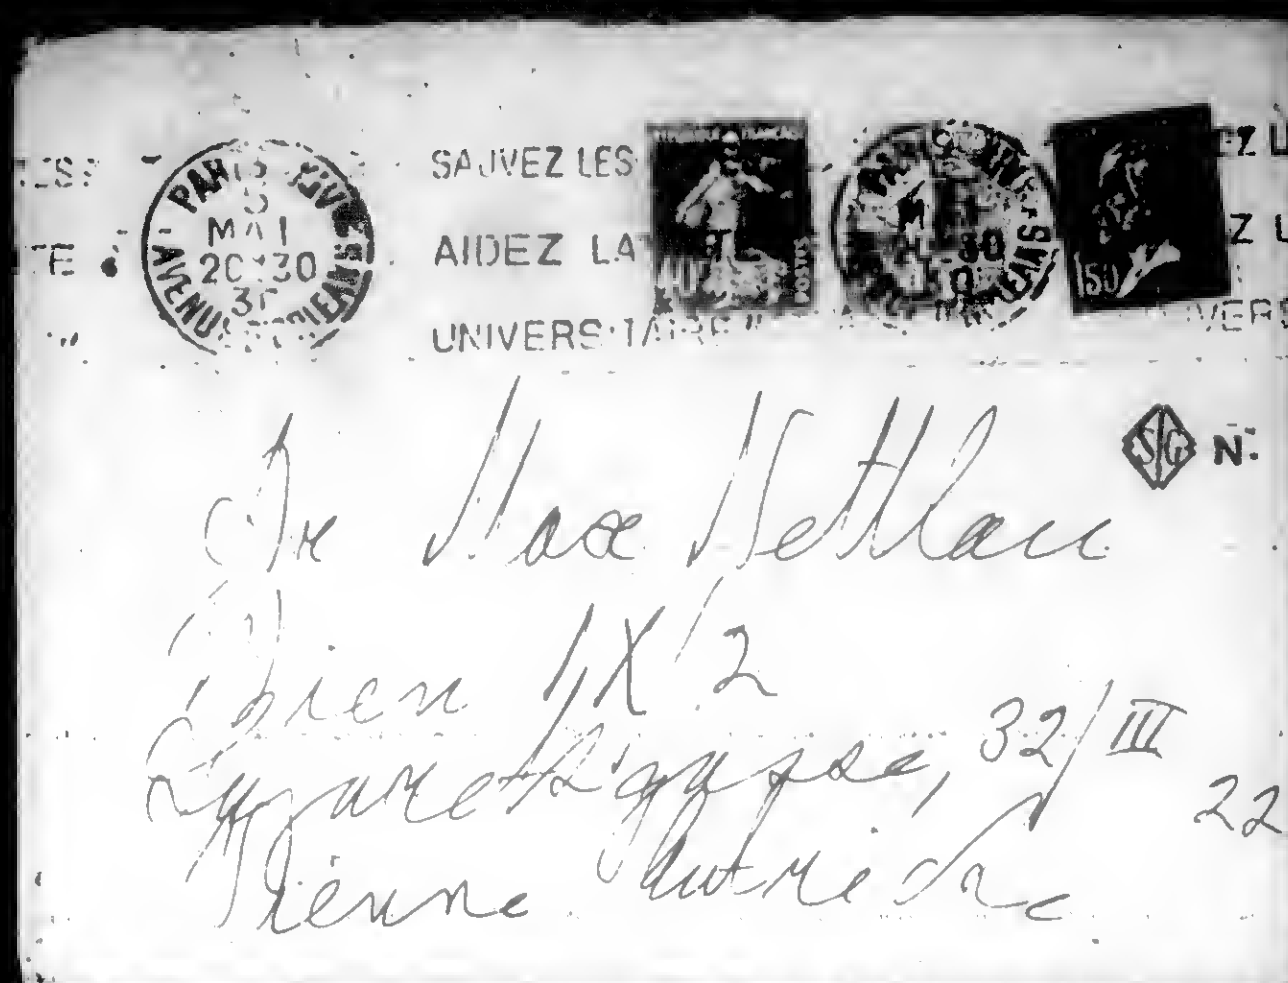 PARIS XIV
5
MAI
20 30
30
AVENUE D'ORLEANS
SAUVEZ LES
AIDEZ LA
UNIVERSITAIRE
REPUBLIQUE FRANCAISE
POSTES
1 50
EZ L
Z L
IVERS
SG N.
Dr Max Nettlau
Wien IX/2
Lazarethgasse, 32/III
22
Vienne Autriche